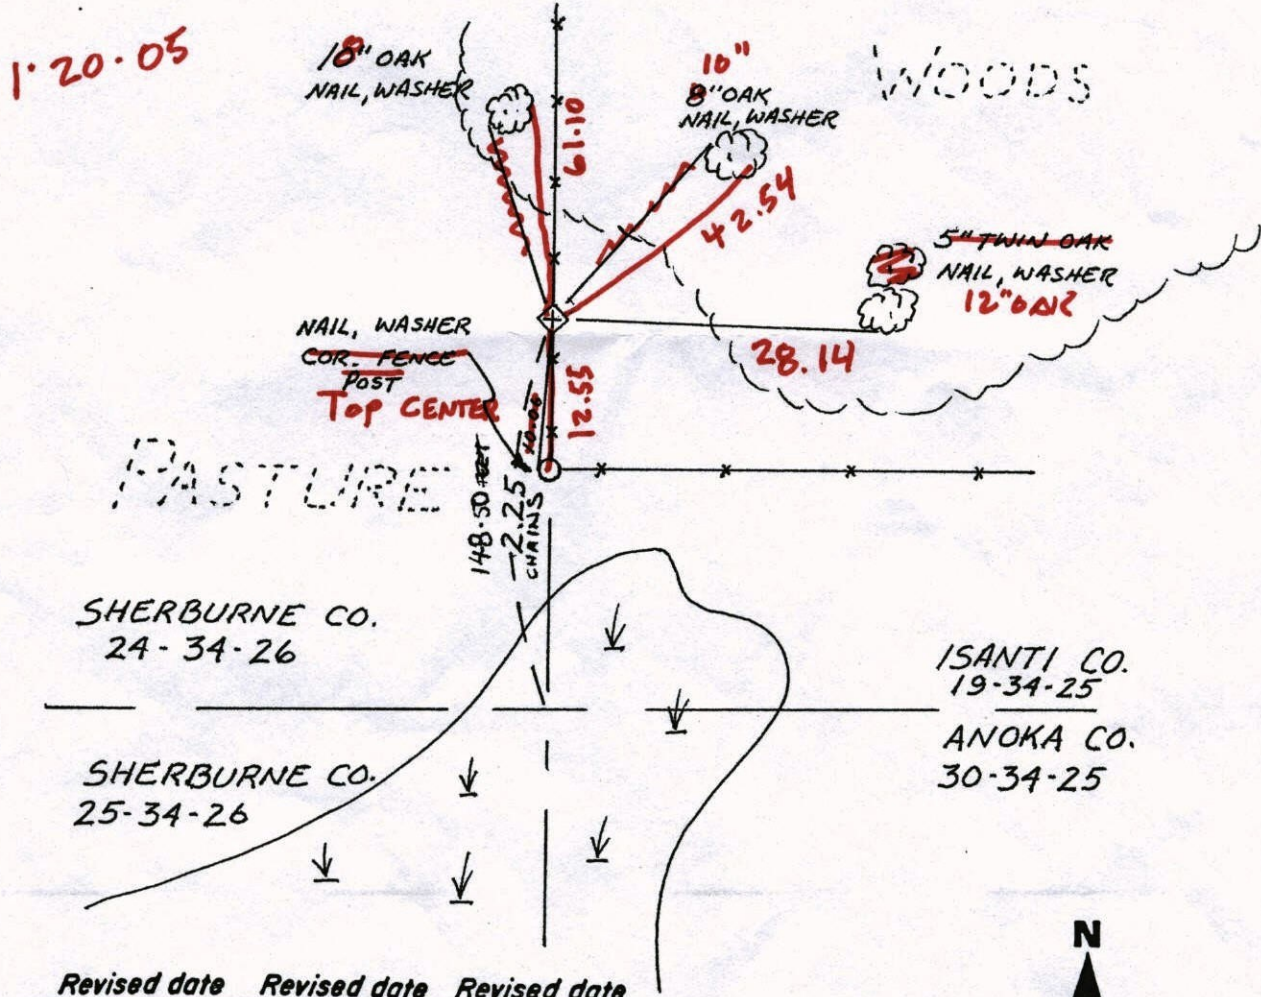 1·20·05
18" OAK
NAIL, WASHER
61.10
10"
8" OAK
NAIL, WASHER
WOODS
42.54
5" TWIN OAK
NAIL, WASHER
12" OAK
28.14
NAIL, WASHER
COR. FENCE
POST
TOP CENTER
12.55
PASTURE
148.50 FEET
2.25
CHAINS
SHERBURNE CO.
24-34-26
ISANTI CO.
19-34-25
ANOKA CO.
30-34-25
SHERBURNE CO.
25-34-26
N
Revised date Revised date Revised date